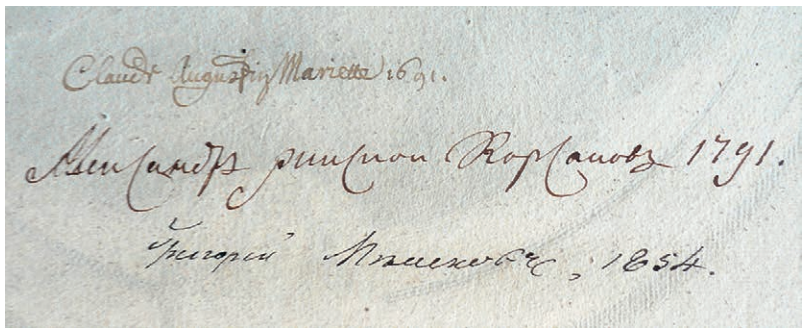 Claude Augustin Mariette 1691.
Александръ римской Корсаковъ 1791.
Григорий 1854.